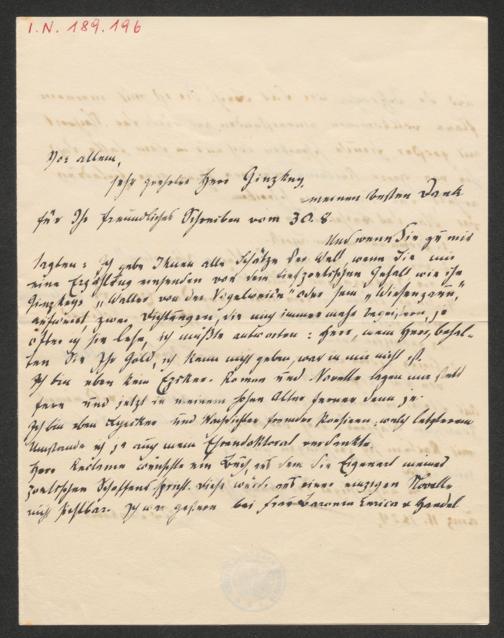 I.N. 189.196
Vor allem,
sehr geehrter Herr Ginzkey,
meinen besten Dank
für Ihr freundliches Schreiben vom 30.8.
Und wenn Sie zu mir
sagten: ich gebe Ihnen alle Schätze der Welt wenn Sie mir
eine Erzählung einsenden von dem tiefpoetischen Gehalt wie ihn
Ginzkeys „Walter von der Vogelweide" oder sein „Wiesenzaun",
aufweist zwei Dichtungen die mich immer mehr begeistern, je
öfter ich sie lese, ich müßte antworten: Herr, mein Herr, behal-
ten Sie Ihr Gold, ich kann nicht geben, was in mir nicht ist.
Ich bin eben kein Epiker. Roman und Novelle lagen mir stets
fern und jetzt in meinem hohen Alter ferner denn je.
Ich bin eben Lyriker und Nachdichter fremder Poesieen; welch letzterem
Umstande ich ja auch mein Ehrendoktorat verdanke.
Herr Reclam wünschte ein Buch aus dem die Eigenart meines
poetischen Schaffens spricht. Diese würde aus einer einzigen Novelle
nicht sichtbar. Ich war gestern bei Frau Baronin Enrica v Handel